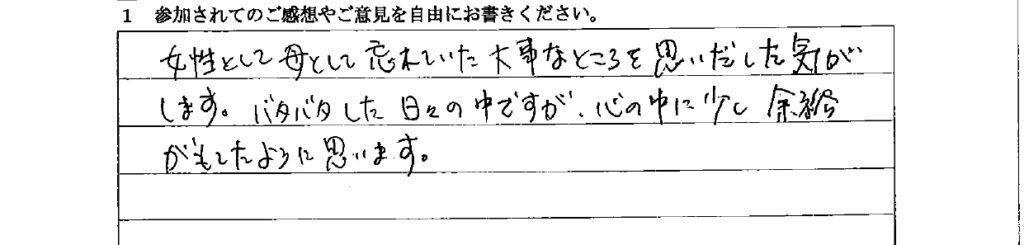 1 参加されてのご感想やご意見を自由にお書きください。
女性として母として忘れていた大事なところを思いだした気が
します。バタバタした日々の中ですが、心の中に少し余裕
がもてたように思います。